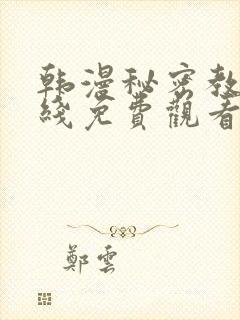 韩漫秘密教
线免費觀看
鄭雲